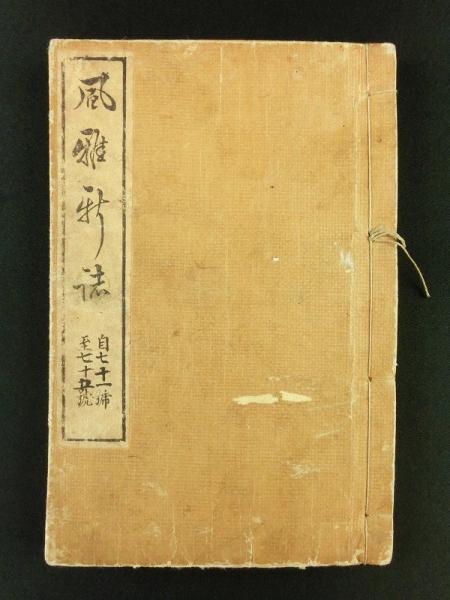 風雅新誌
自七十一號
至七十五號